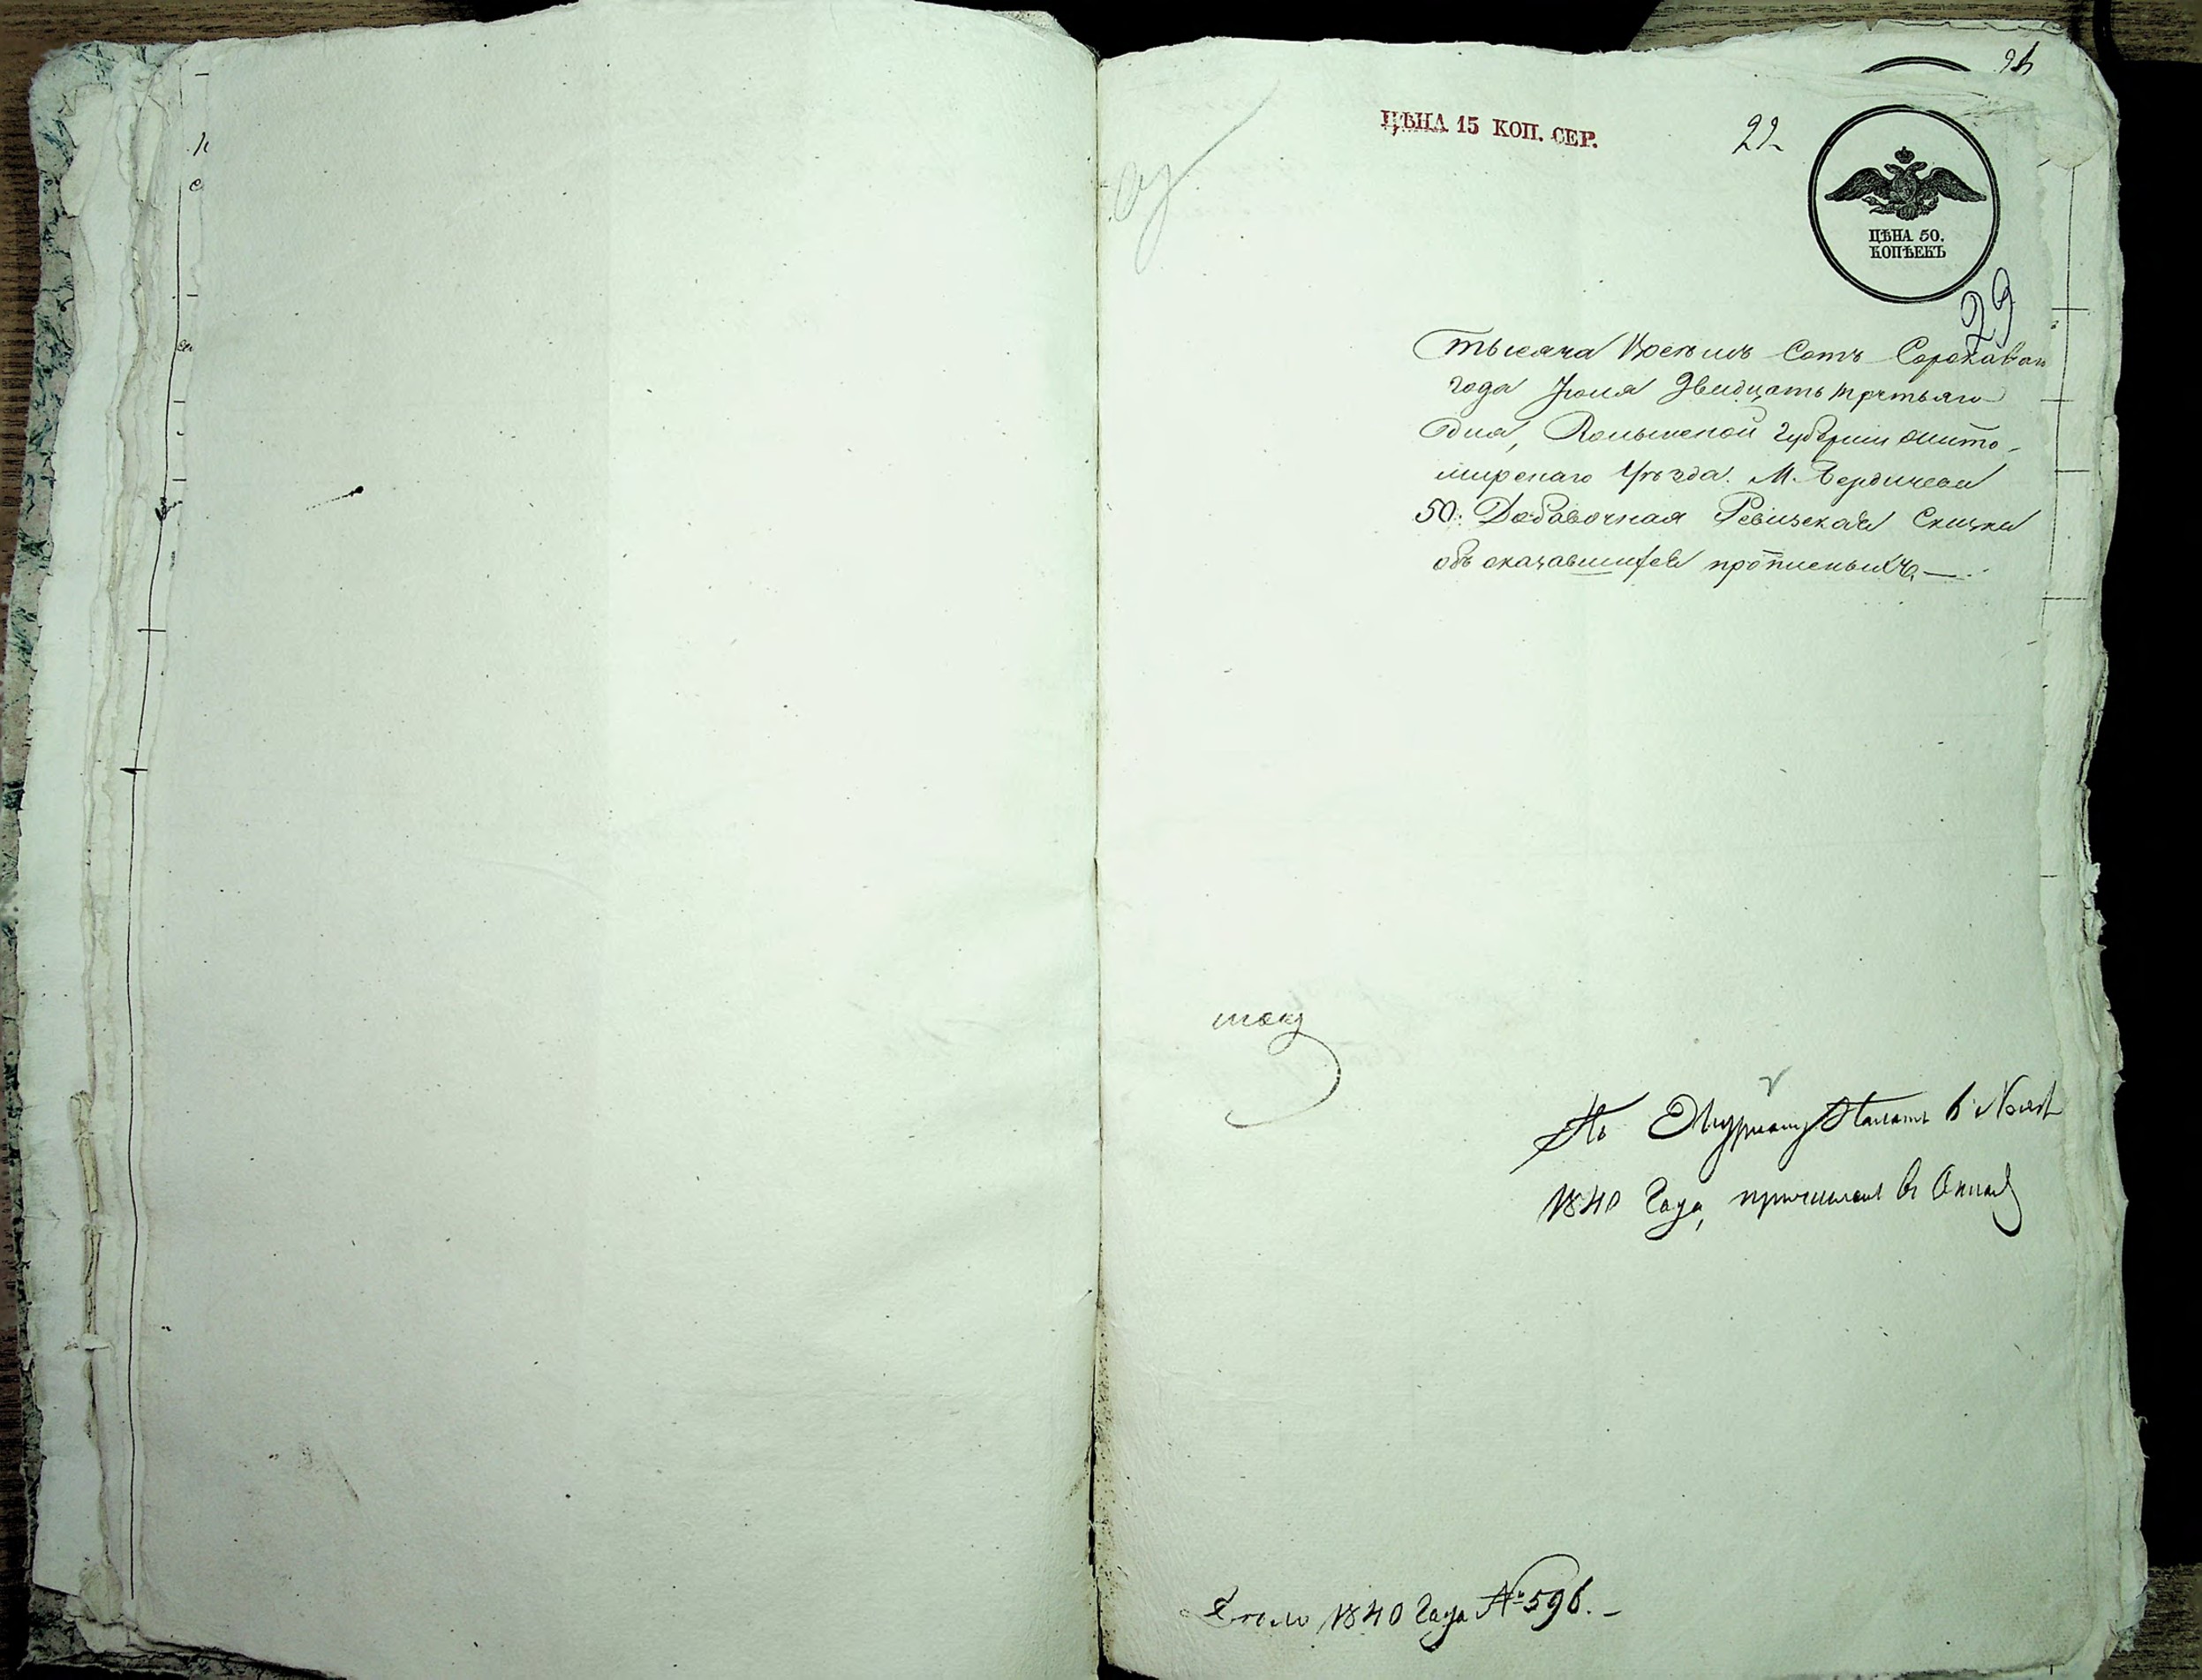 ЦѢНА 15 КОП. СЕР.
22
ЦѢНА 50.
КОПѢЕКЪ
29
Тысяча Восемь Сотъ Сороковаго
года Июля двадцать третьяго
дня, Волынской Губерніи Жито-
мирскаго Уѣзда. М. Бердичева
50. Добавочная Ревизская Сказка
объ оказавшихся прописныхъ.—
По Журналу Палаты 6 Нояб
1840 Года, причислены въ Окладъ
Дѣло 1840 Года № 596.-